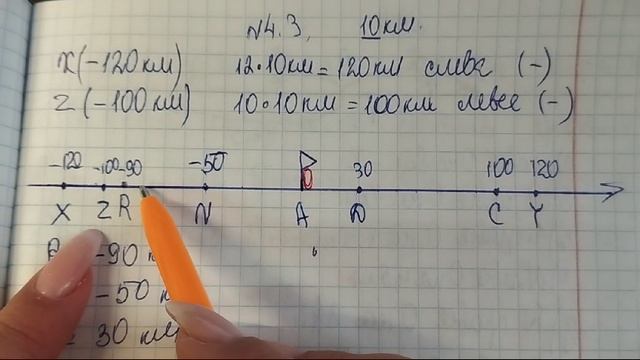 №4.3. 10км.
X(-120км) 12·10км=120км слева (-)
Z(-100км) 10·10км=100км левее (-)
-120 -100 -90 -50 0 30 100 120
X Z R N A D C Y
-90
-50
30 км